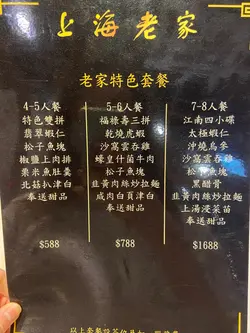 上海老家
老家特色套餐
4-5人餐
特色雙拼
翡翠蝦仁
松子魚塊
椒鹽上肉排
粟米魚肚羹
北菇扒津白
奉送甜品
$588
5-6人餐
福祿壽三拼
乾燒虎蝦
沙窩雲吞雞
蠔皇什菌牛肉
松子魚塊
韭黃肉絲炒拉麵
咸肉白頁津白
奉送甜品
$788
7-8人餐
江南四小碟
太極蝦仁
沖燒烏參
沙窩雲吞雞
松子魚塊
黑醋骨
韭黃肉絲炒拉麵
上湯浸菜苗
奉送甜品
$1688